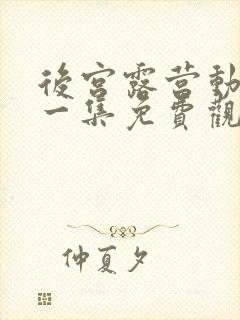 後宮露营動
一集免費觀
仲夏夕